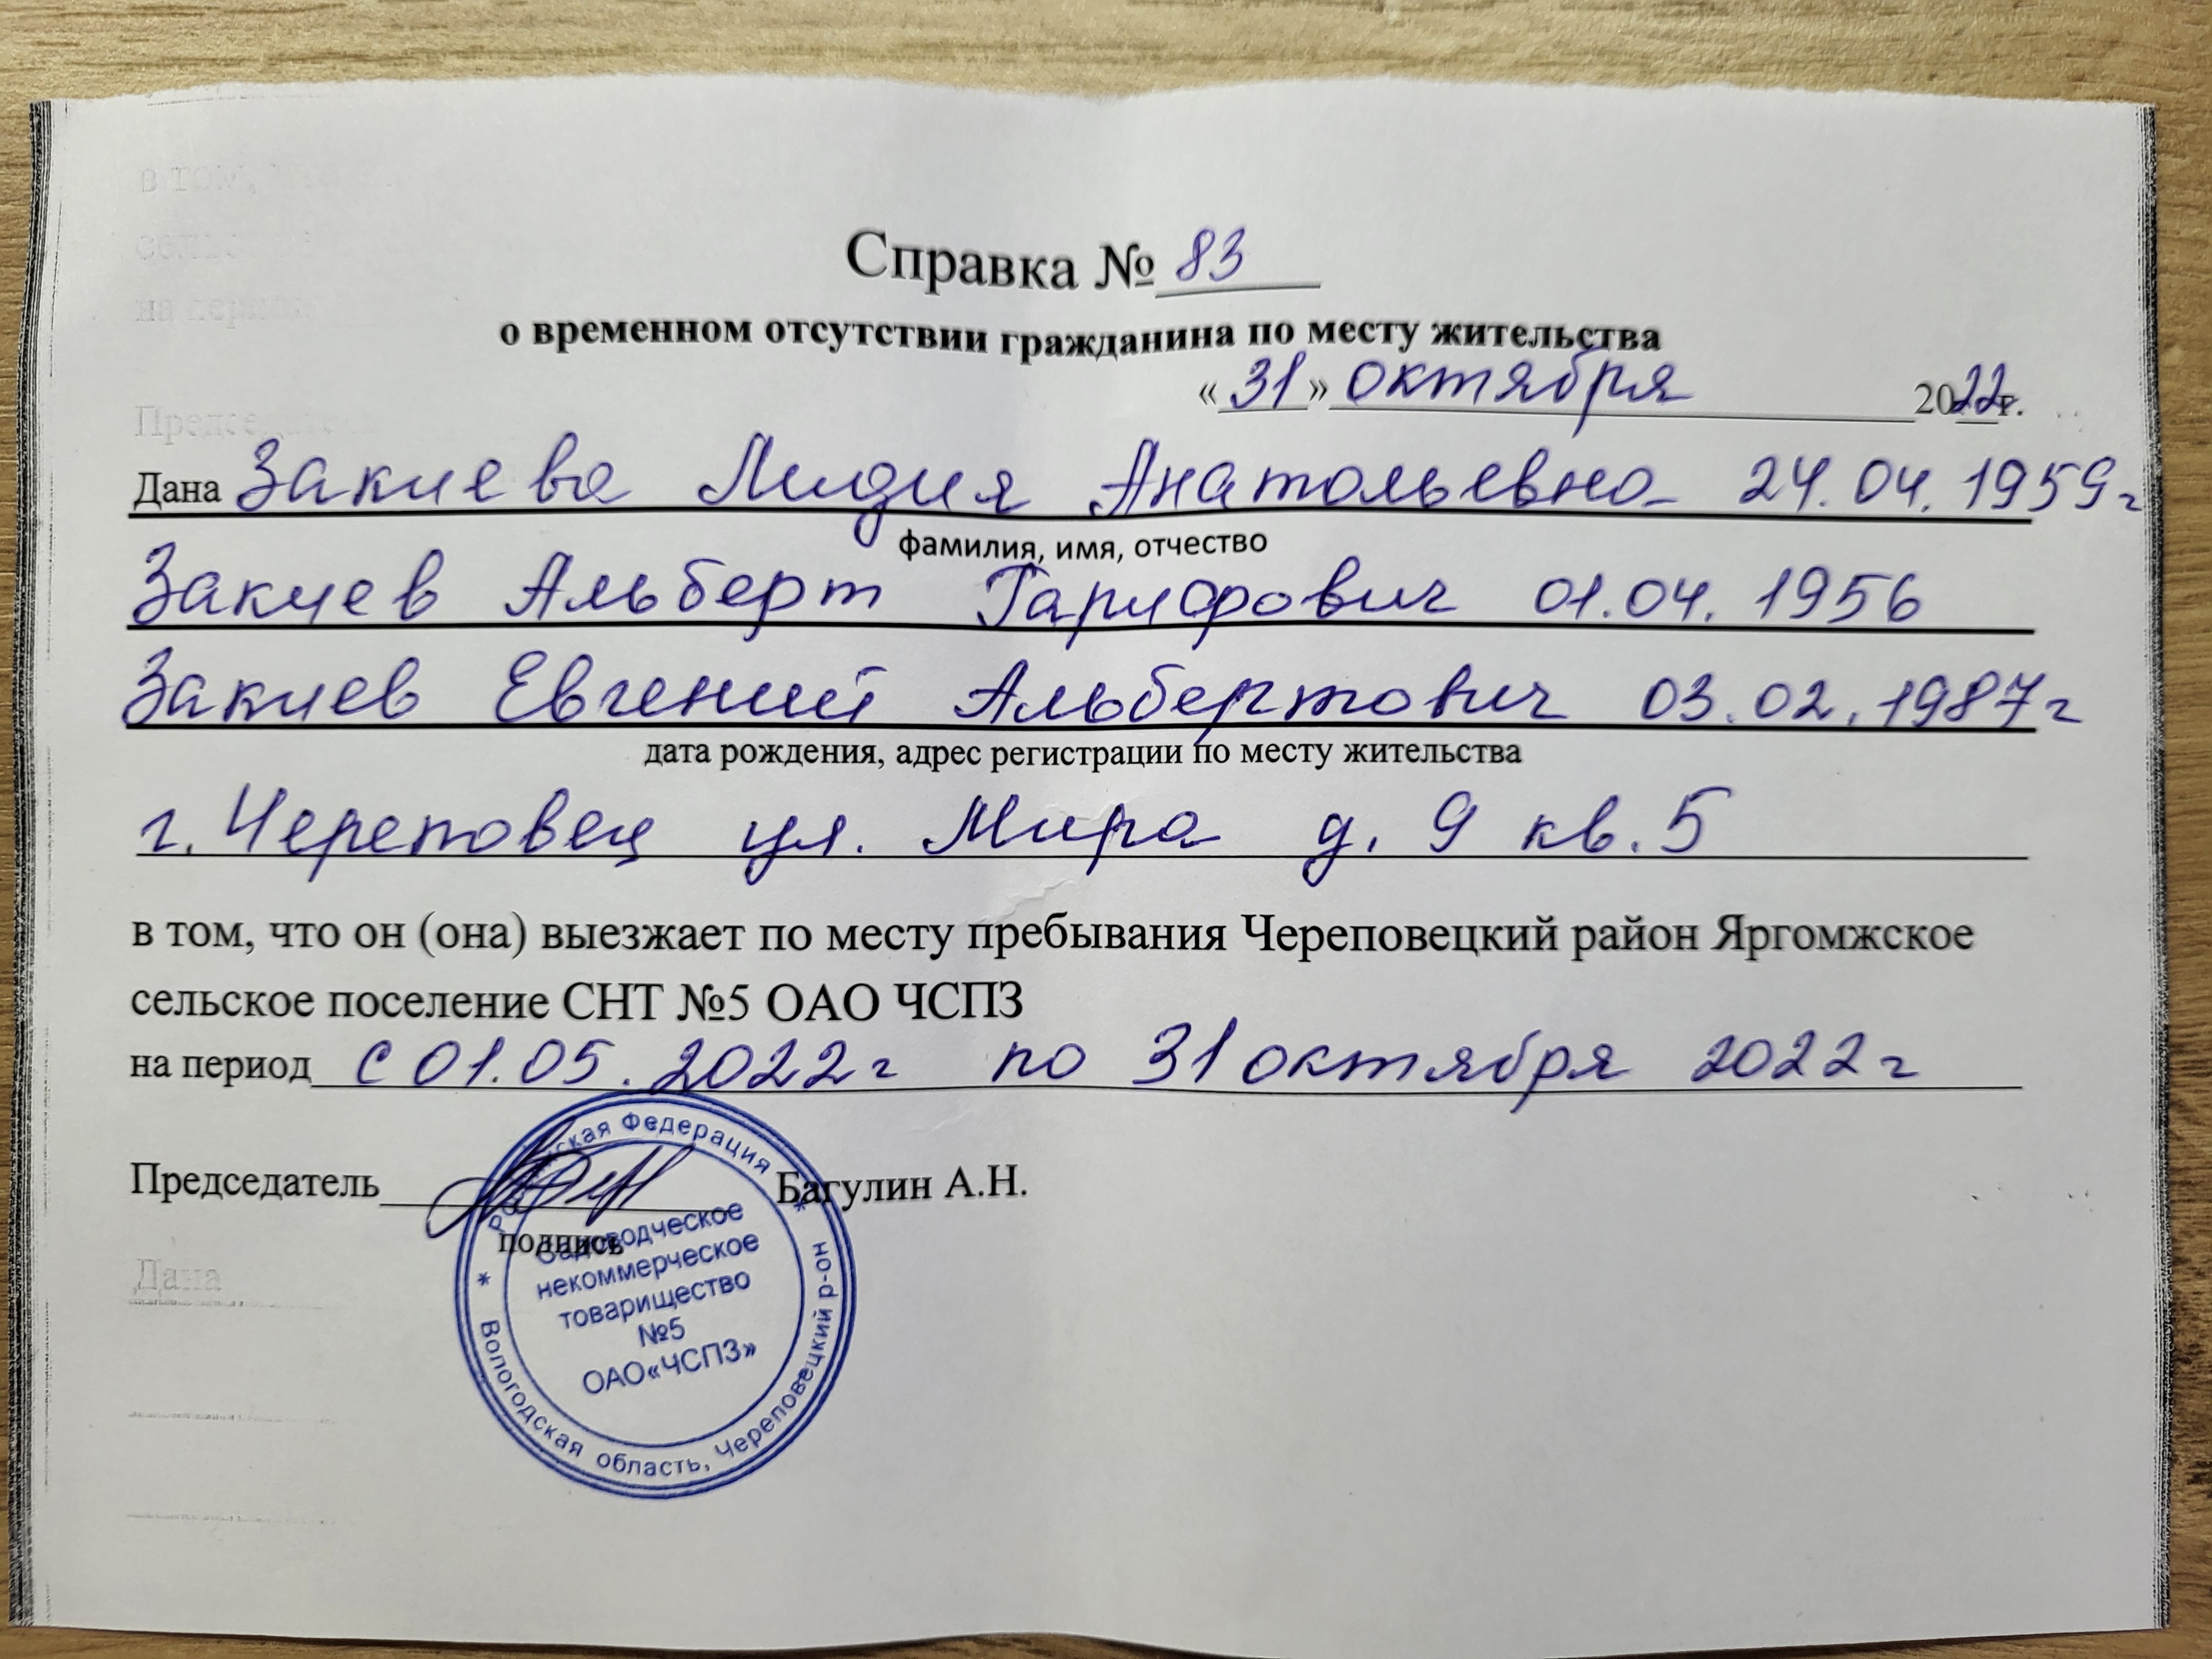 Справка № 83
о временном отсутствии гражданина по месту жительства
«31» октября 2022г.
Дана Закиева Лидия Анатольевна 24.04.1959г
фамилия, имя, отчество
Закиев Альберт Гарифович 01.04.1956
Закиев Евгений Альбертович 03.02.1987г
дата рождения, адрес регистрации по месту жительства
г. Череповец ул. Мира д. 9 кв. 5
в том, что он (она) выезжает по месту пребывания Череповецкий район Яргомжское
сельское поселение СНТ №5 ОАО ЧСПЗ
на период с 01.05.2022г по 31 октября 2022г
Председатель Багулин А.Н.
подпись
Российская Федерация
Садоводческое
некоммерческое
товарищество
№5
ОАО«ЧСПЗ»
Вологодская область, Череповецкий р-он
в том,
на период
Председатель
Дана